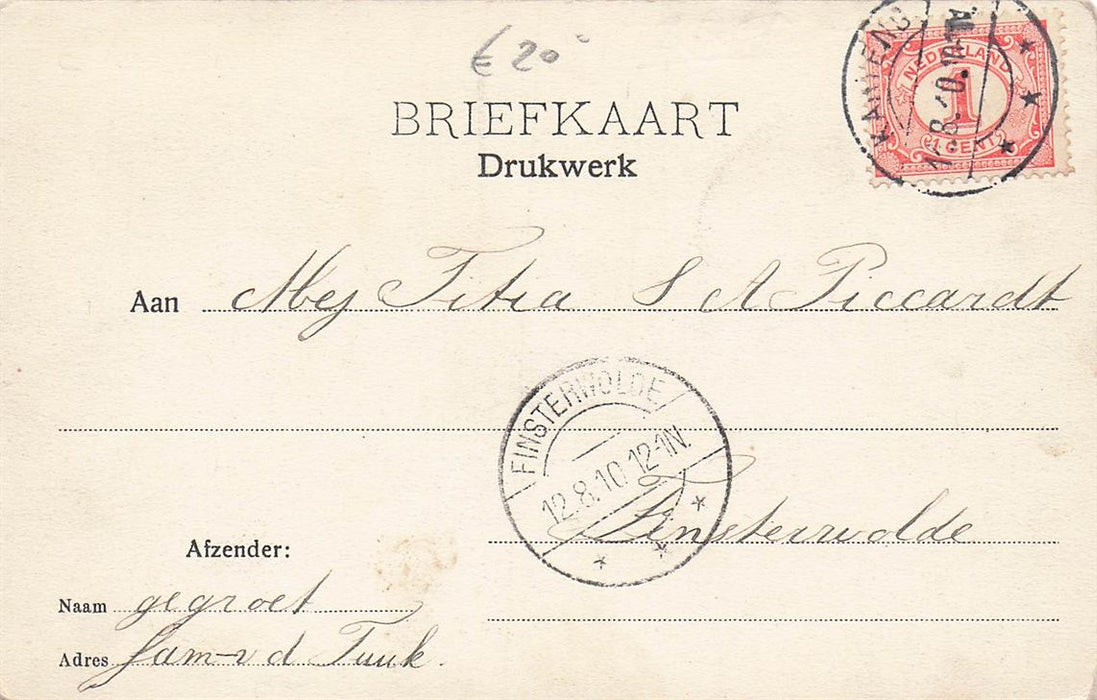 € 20
KANTENS
NEDERLAND
1
CENT
BRIEFKAART
Drukwerk
Aan Mej Titia S A Piccardt
FINSTERWOLDE
12.8.10 12-1N.
Finsterwolde
Afzender:
Naam gegroet
Adres Fam v d Tuuk.